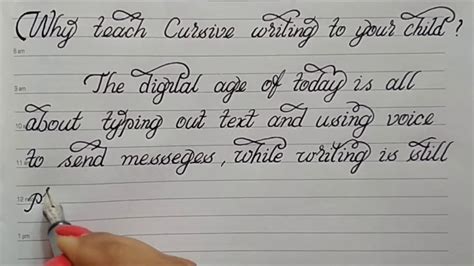 Why teach Cursive writing to your child?
8 am
9 am The digital age of today is all
10 about typing out text and using voice
11 am to send messeges, while writing is still
12 p
1 pm